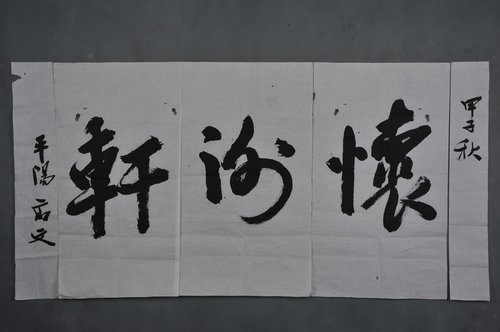 甲子秋
懷沙軒
平陽 文